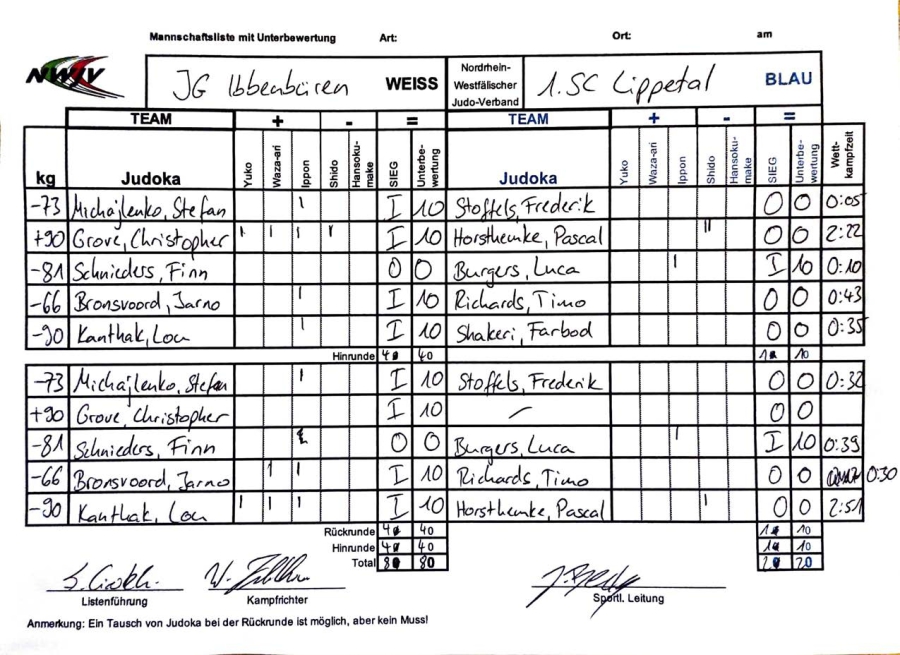 Mannschaftsliste mit Unterbewertung Art: Ort: am
NWJV JG Ibbenbüren WEISS Nordrhein-Westfälischer Judo-Verband 1. SC Lippetal BLAU
TEAM + - = TEAM + - =
kg Judoka Yuko Waza-ari Ippon Shido Hansoku-make SIEG Unterbewertung Judoka Yuko Waza-ari Ippon Shido Hansoku-make SIEG Unterbe-wertung Wett-kampfzeit
-73 Michajlenko, Stefan I I 10 Stoffels, Frederik 0 0 0:05
+90 Grove, Christopher I I I I I 10 Horsthemke, Pascal II 0 0 2:22
-81 Schnieders, Finn 0 0 Burgers, Luca I I 10 0:10
-66 Bronsvoord, Jarno I I 10 Richards, Timo 0 0 0:43
-90 Kanthak, Lou I I 10 Shakeri, Farbod 0 0 0:35
Hinrunde 4 40 1 10
-73 Michajlenko, Stefan I I 10 Stoffels, Frederik 0 0 0:32
+90 Grove, Christopher I 10 — 0 0
-81 Schnieders, Finn 0 0 Burgers, Luca I I 10 0:39
-66 Bronsvoord, Jarno I I I 10 Richards, Timo 0 0 0:30
-90 Kanthak, Lou I I I I 10 Horsthemke, Pascal I 0 0 2:51
Rückrunde 4 40 1 10
Hinrunde 4 40 1 10
Total 8 80 2 20
Listenführung Kampfrichter Sportl. Leitung
Anmerkung: Ein Tausch von Judoka bei der Rückrunde ist möglich, aber kein Muss!